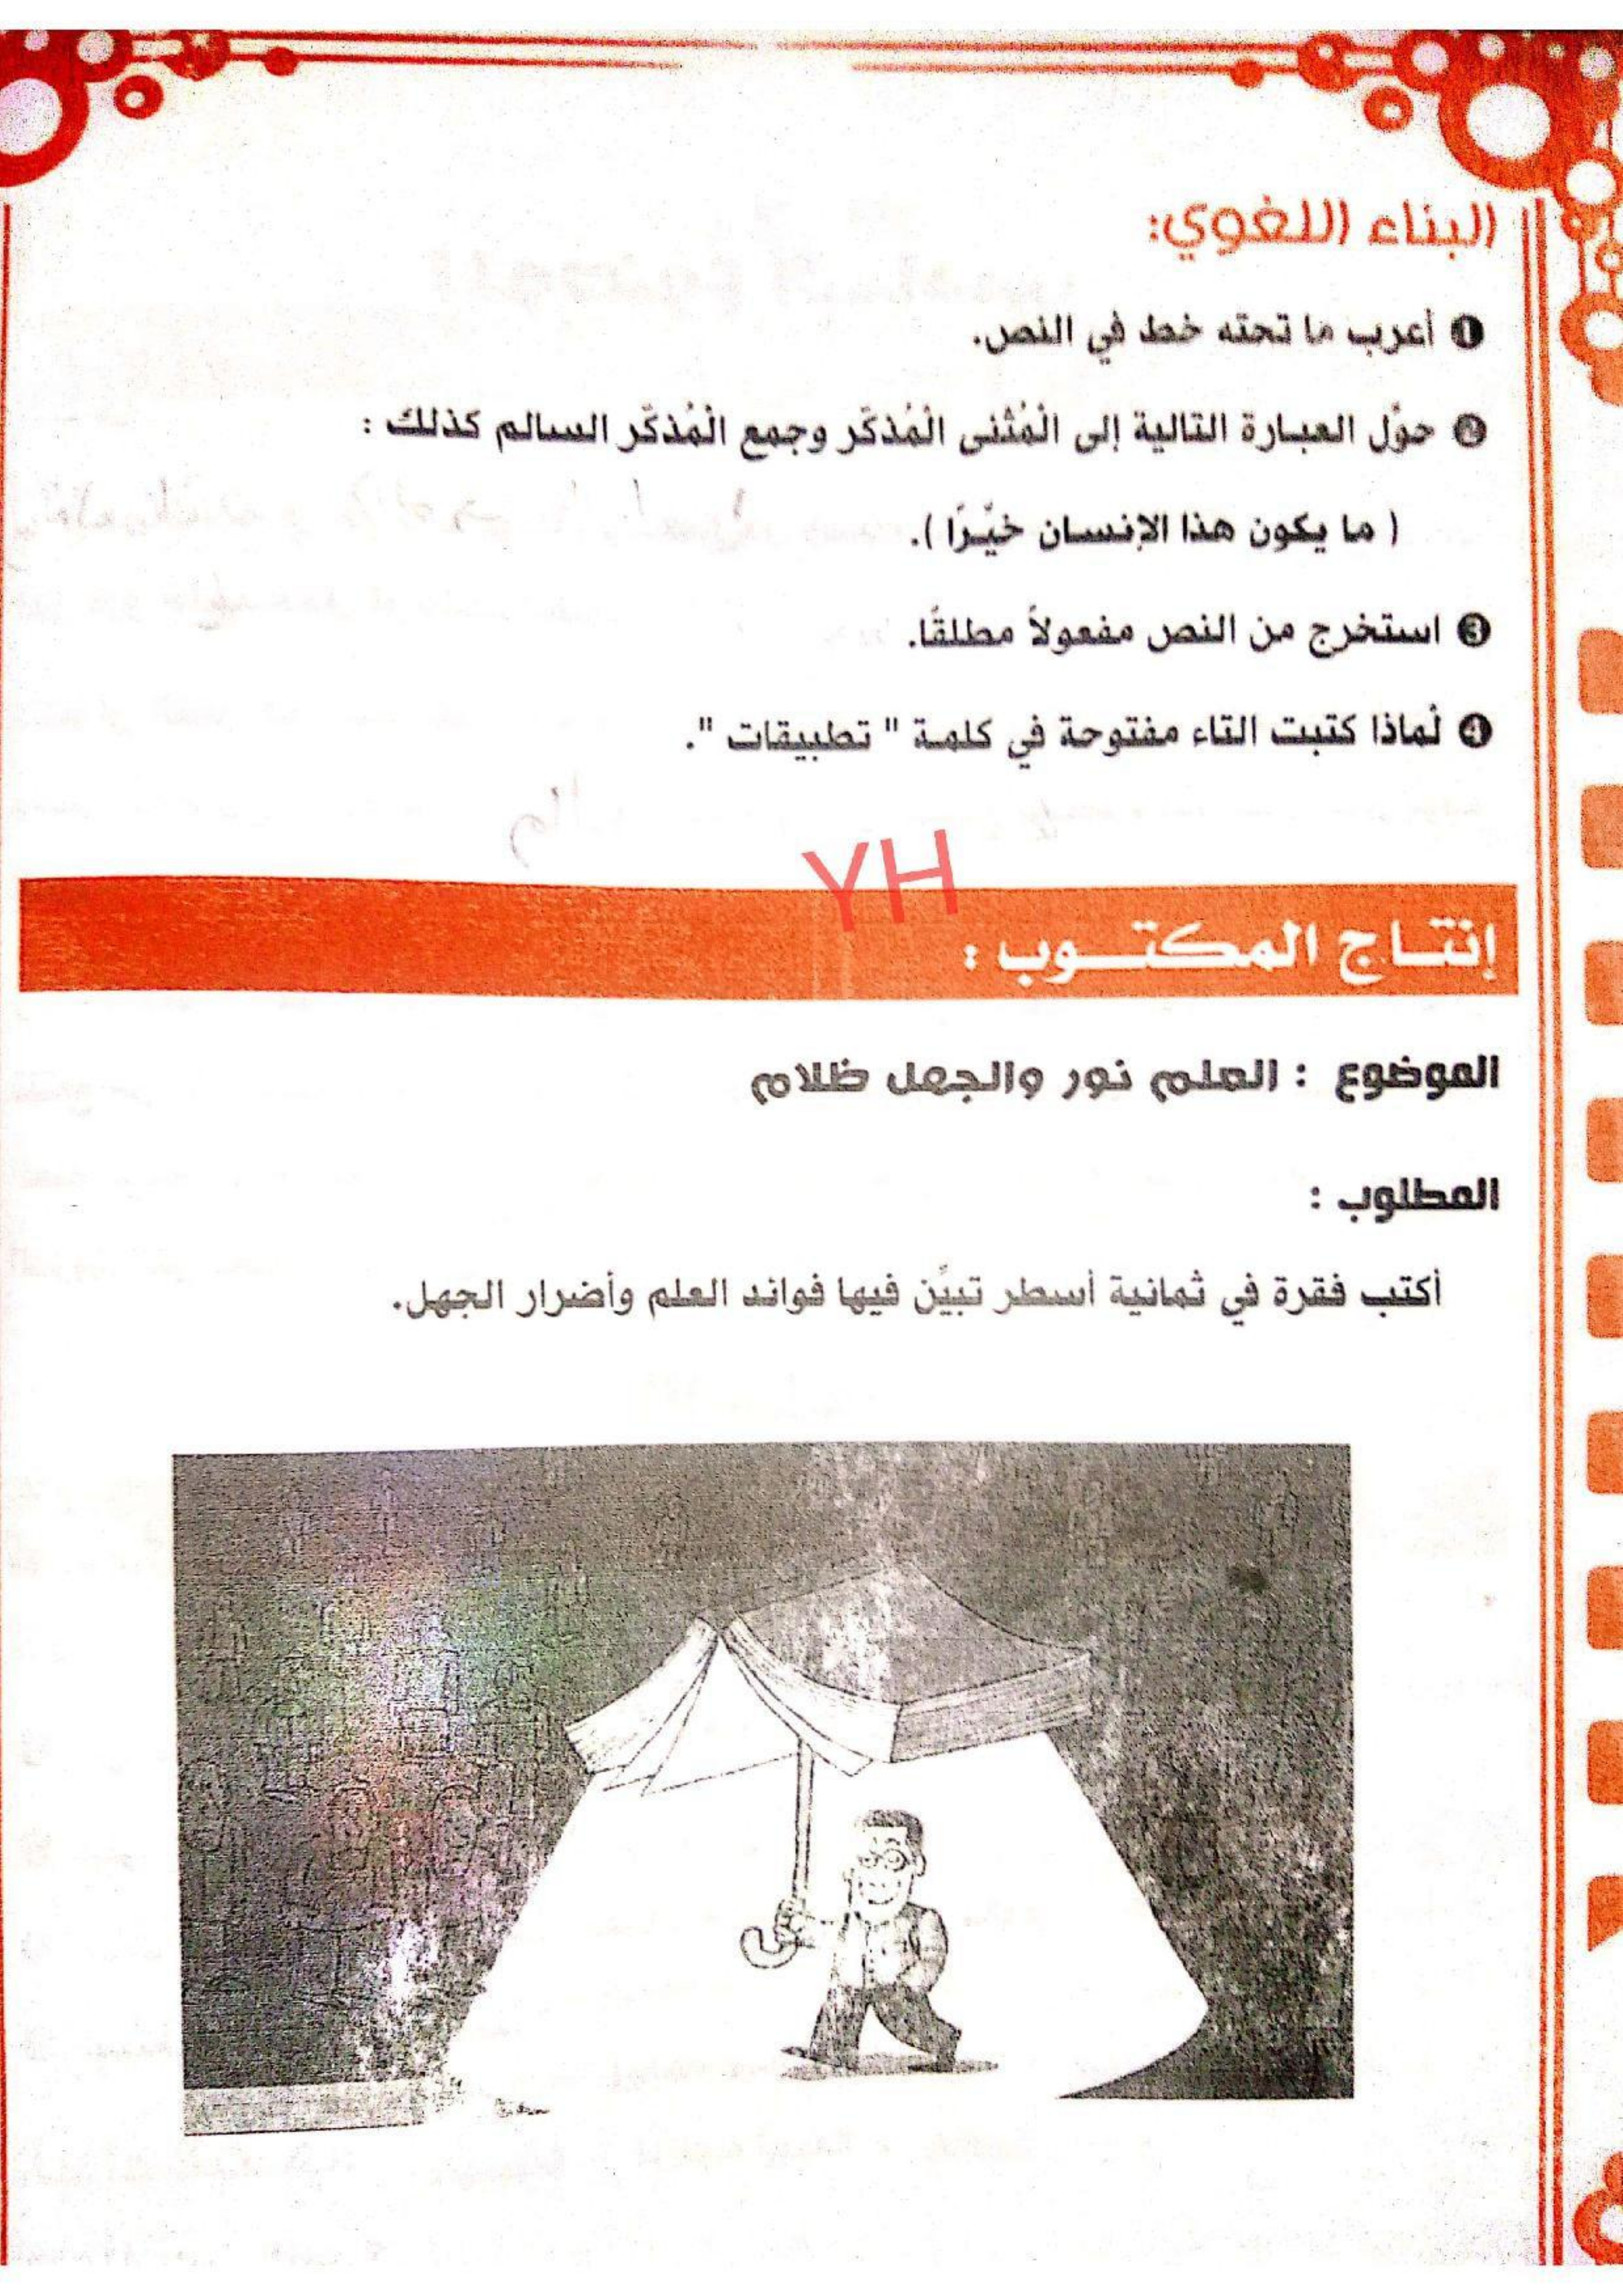 البناء اللغوي:
❶ أعرب ما تحته خط في النص.
❷ حوّل العبارة التالية إلى الْمُثْنى الْمُذكّر وجمع الْمُذكّر السالم كذلك :
( ما يكون هذا الإنسان خيّرًا ).
❸ استخرج من النص مفعولاً مطلقًا.
❹ لماذا كتبت التاء مفتوحة في كلمة " تطبيقات ".
YH
إنتاج المكتوب :
الموضوع : العلم نور والجهل ظلام
المطلوب :
أكتب فقرة في ثمانية أسطر تبيّن فيها فوائد العلم وأضرار الجهل.